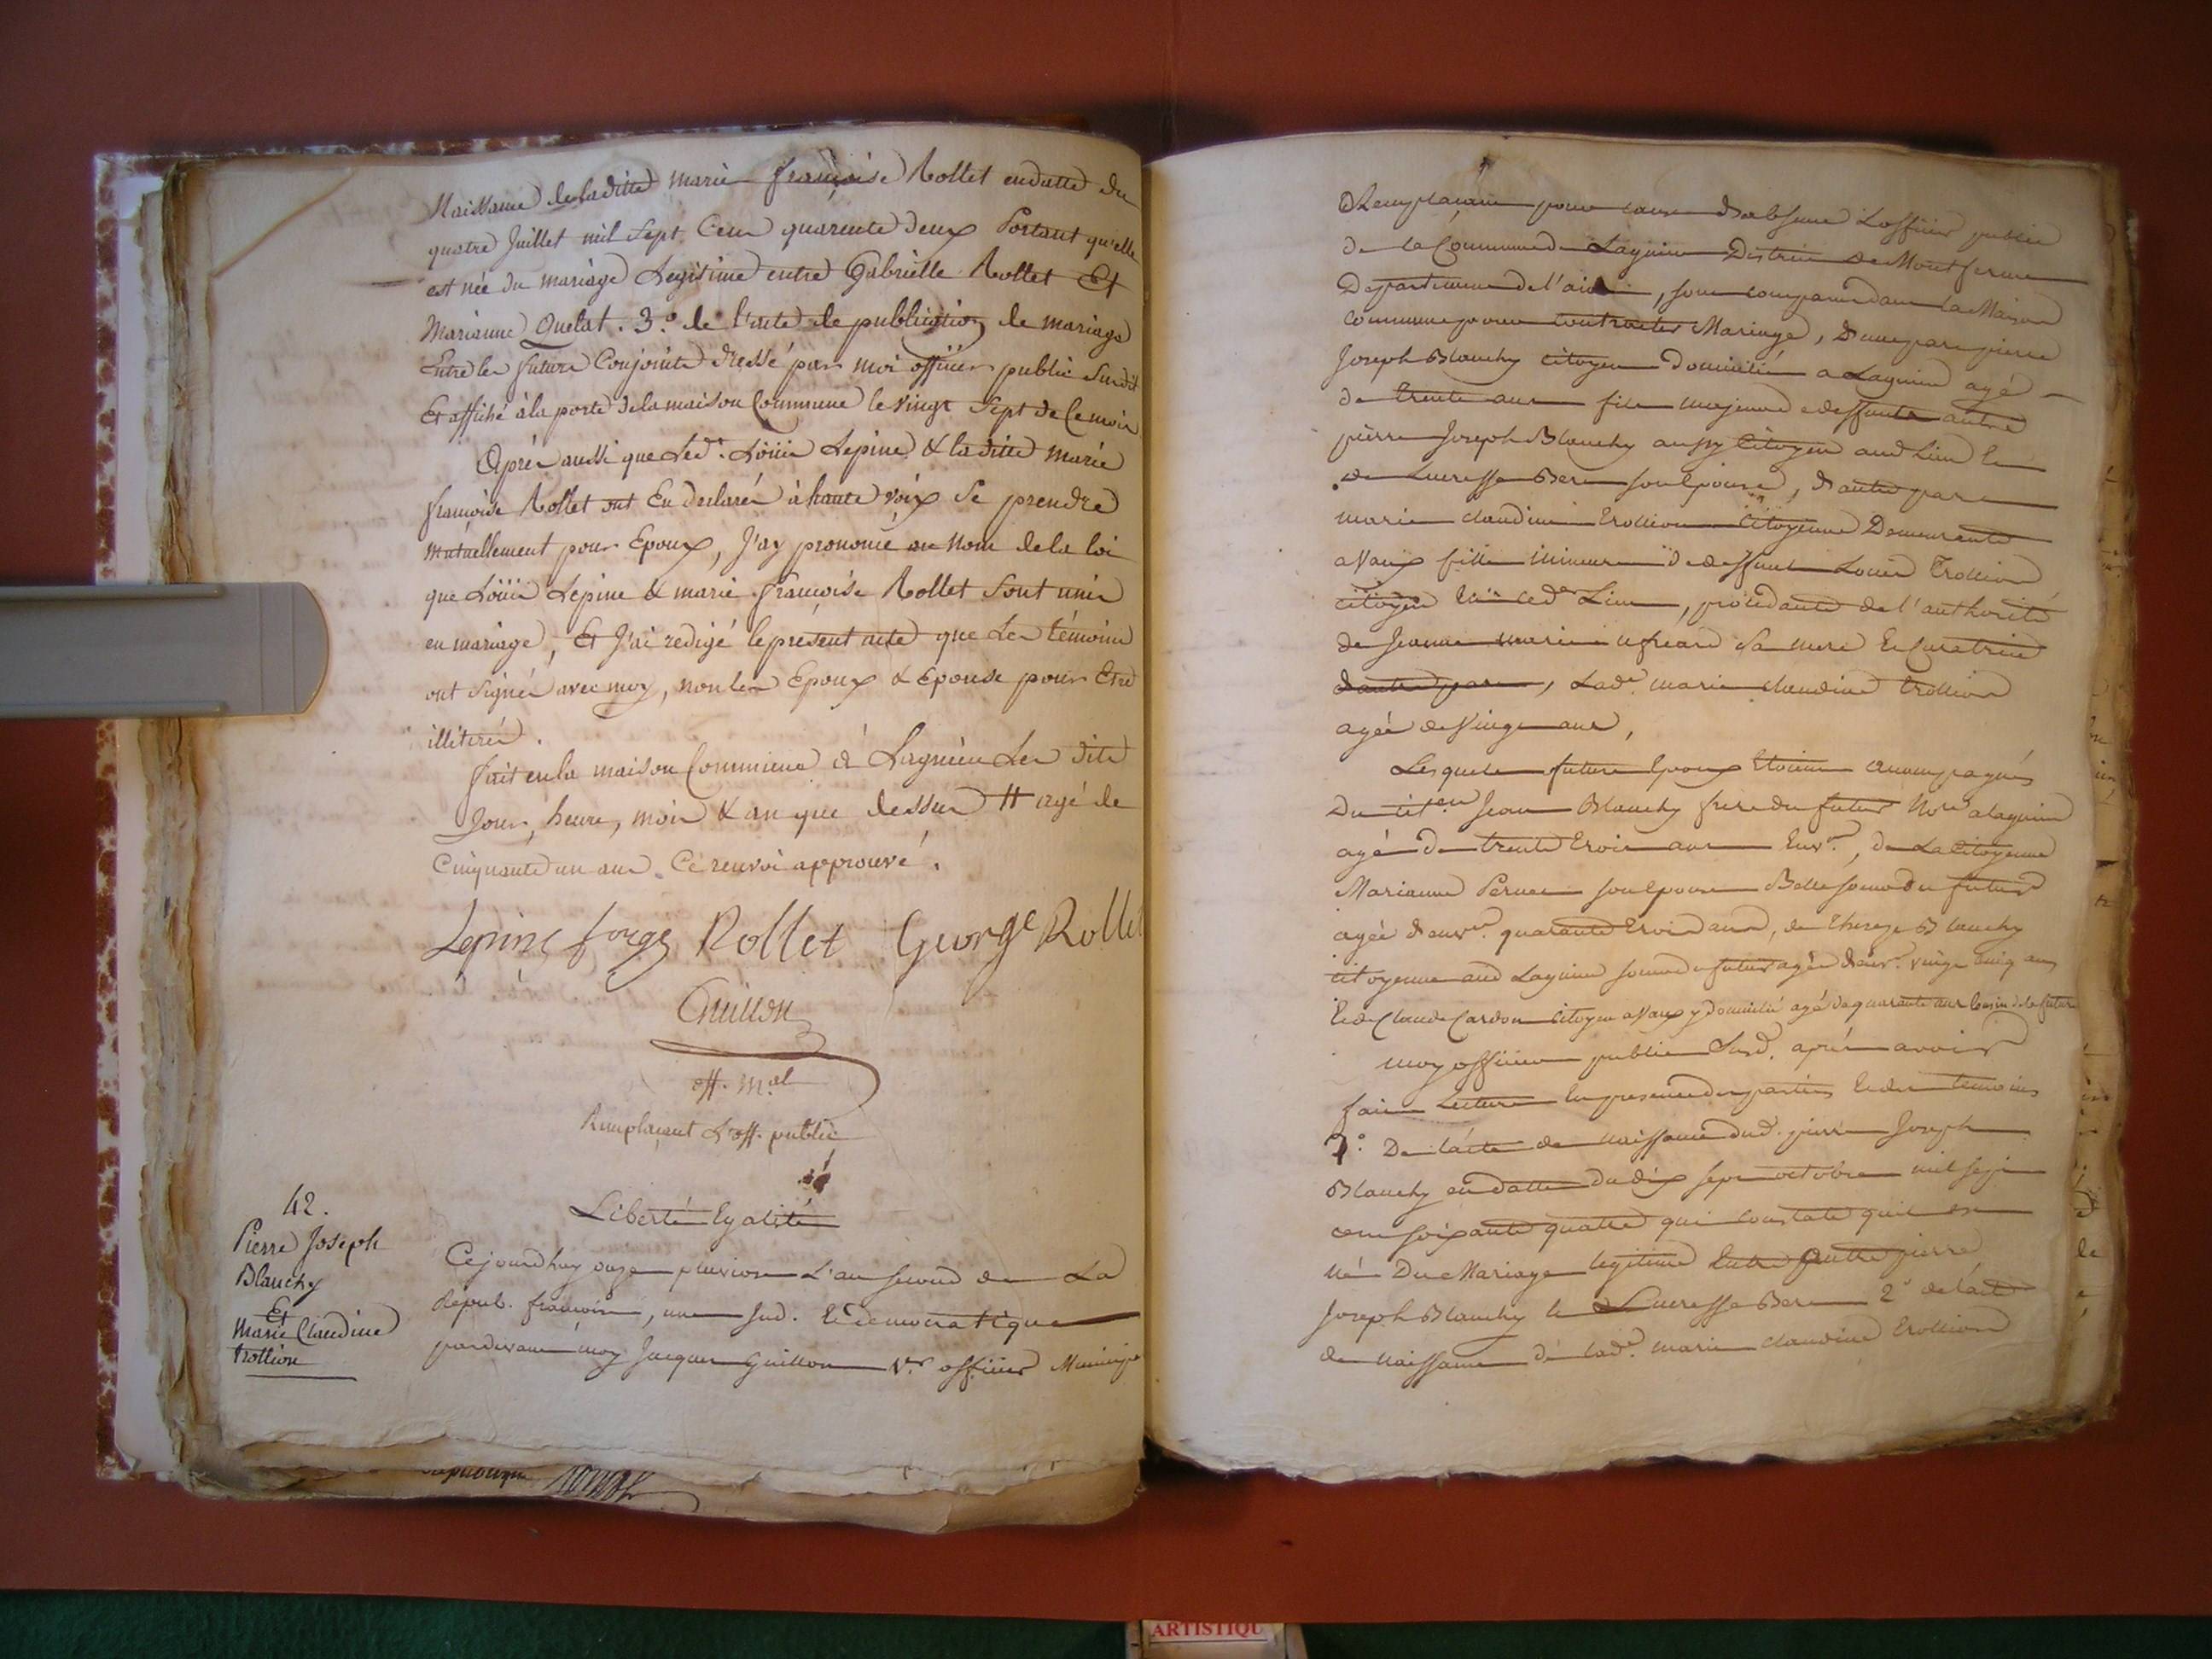 Naissance de laditte marie françoise Rollet endatte du
quatre Juillet mil Sept Cent quarente deux Portant qu'elle
est née du mariage Legitime entre Gabrielle Rollet Et
Marianne Quelat. 3.º de l'acte de publication de mariage
Entre les futurs Conjoints dressé par moi officier public Susdit
Et affiché à la porte de la maison Commune le vingt Sept de Ce mois
Après aussi que Led.t Loüis Lepine & laditte marie
françoise Rollet ont Eu declarés à haute voix Se prendre
mutuellement pour Epoux, J'ay prononcé au Nom de la loi
que Loüis Lepine & marie françoise Rollet Sont unis
en mariage, Et J'ai redigé le present acte que Les témoins
ont Signés avec moy, non les Epoux & Epouse pour Etre
illétérés.
fait en la maison Commune de Lagnieu Les dits
Jour, heure, mois & an que dessus # agé de
Cinquante un ans. Ce renvoi approuvé.
Lepine Rollet George Rollet
Guillon
off. m.al
Remplaçant L'off. public
Liberté Egalité
42.
Pierre Joseph
Blanchy
Et
Marie Claudine
trollion
Cejourdhuy onze pluviose L'an second de La
Repub. françoise, une Ind. Et democratique
pardevant moy Jacques Guillon offiicier Municip
Remplaçant pour cause d'absence L'officier public
de la Commune de Lagnieu District de Montferme
Departement de l'ain, sont comparus dans la Maison
commune pour contracter Mariage, D'une part pierre
Joseph Blanchy citoyen Domicilié a Lagnieu agé
de trente ans fils majeur de deffunts autre
pierre Joseph Blanchy aussy Citoyen aud Lieu Et
de Lucresse Bere son Epouse, d'autre part
marie claudine trollion Citoyenne Demeurante
a Vaux fille mineure de deffunt Louis Trollion
citoyen Led. Lieu, procedante de l'authorité
de Jeanne marie sa mere Et Curatrice
d'autre part, Lad.e marie claudine trollion
agée de Vingt ans,
Lesquels futurs Epoux Etoient accompagnés
Du cit.en Jean Blanchy frere du futur No.re a lagnieu
agé de trente trois ans Env.n, de La Citoyenne
Marianne son Epouse Belle soeur du futur
agée d'env.n quarante trois ans, de Thereze Blanchy
citoyenne aud Lagnieu soeur du futur agée d'env.n vingt cinq ans
Et de Claude Cardon citoyen a Vaux y domicilié agé de quarante ans Cousin de la future
moy officier public Susd. après avoir
fait Lecture En presence des parties Et des temoins
1.º De l'acte de naissance dud. pierre Joseph
Blanchy en datte du dix sept octobre mil sept
cent soixante quatre qui constate qu'il est
né Du Mariage legitime Entre autre pierre
Joseph Blanchy Et Lucresse Bere 2.º de l'acte
de naissance de lad.e marie claudine trollion
ARTISTIQU